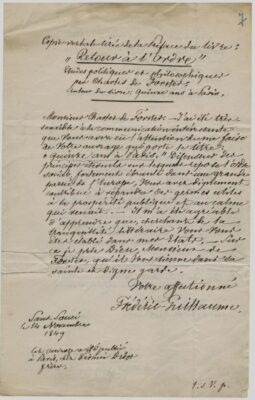 Copie verbale tirée de la Préface du livre:
"Retour à l'Ordre"
Études politiques et philosophiques
par Charles de Forster:
Auteur du livre: Quinze ans à Paris.
Monsieur Charles de Forster - J'ai été très
sensible à la communication intéressante
que vous avez eu l'attention de me faire
de votre ouvrage qui porte le titre
"Quinze ans à Paris." Défenseur des
principes sur lesquels repose l'ordre
social, fortement ébranlé dans une grande
partie de l'Europe, vous avez dignement
contribué à répandre des germes utiles
à la prospérité publique et au calme
qui Il m'a été agréable
d'apprendre que, cherchant de la
tranquillité littéraire Vous Vous
êtes établi dans mes États - Sur
ce je prie Dieu, Monsieur de
Forster, qu'il Vous tienne dans Sa
sainte et digne garde.
Votre affectionné
Frédéric-Guillaume.
Sans-Souci
le 14 Novembre
1849
Cet ouvrage a été publié
à Paris, chez Firmin Didot
frères.
t. s. v. p.